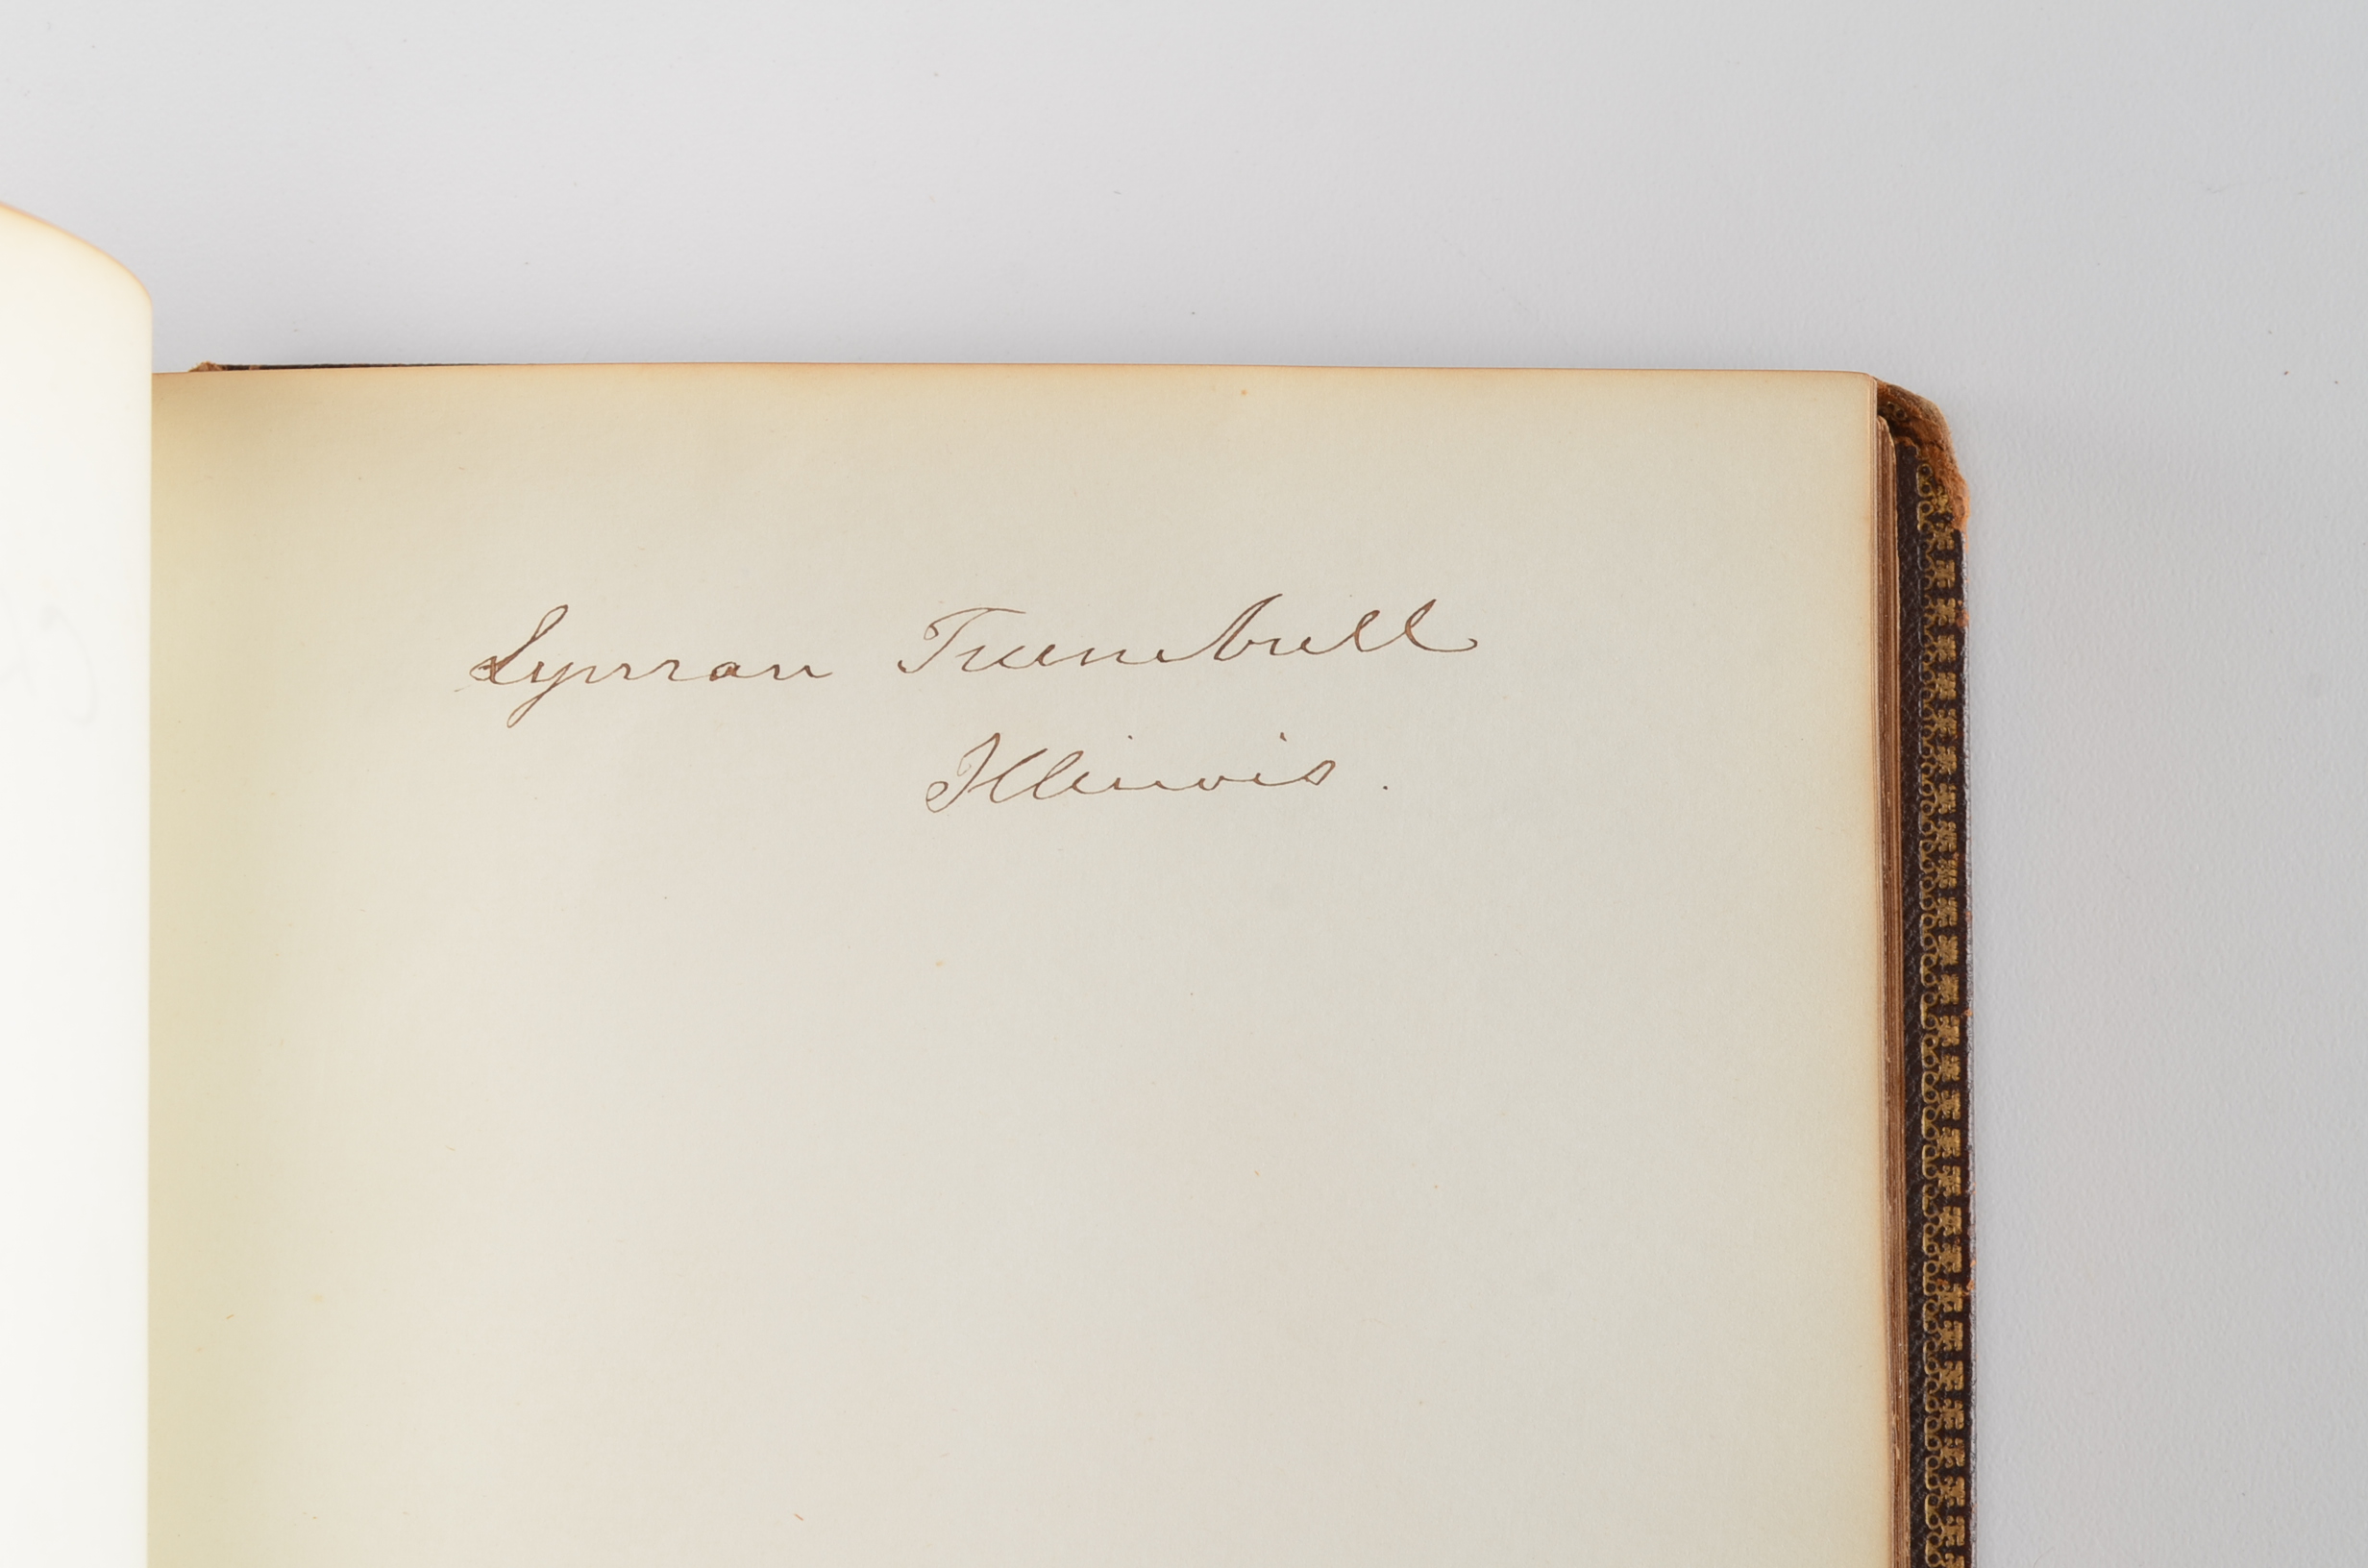 Lyman Trumbull
Illinois.